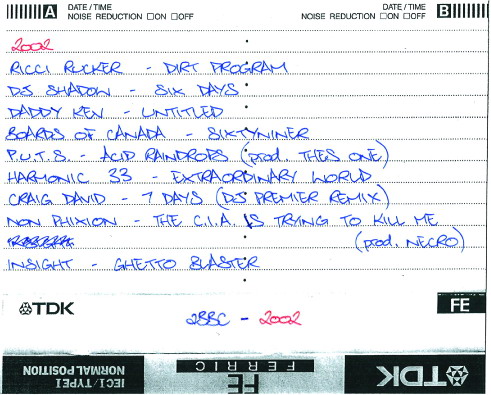 A DATE / TIME
NOISE REDUCTION □ON □OFF
DATE / TIME B
NOISE REDUCTION □ON □OFF
2002
RICCI RUCKER - DIRT PROGRAM
DJ SHADOW - SIX DAYS
DADDY KEV - UNTITLED
BOARDS OF CANADA - SIXTYNINER
P.U.T.S. - ACID RAINDROPS (prod. THES ONE)
HARMONIC 33 - EXTRAORDINARY WORLD
CRAIG DAVID - 7 DAYS (DJ PREMIER REMIX)
NON PHIXION - THE C.I.A. IS TRYING TO KILL ME
(prod. NECRO)
INSIGHT - GHETTO BLASTER
TDK
FE
2BBC - 2002
IECI/TYPE I
NORMAL POSITION
FE
FERRIC
TDK